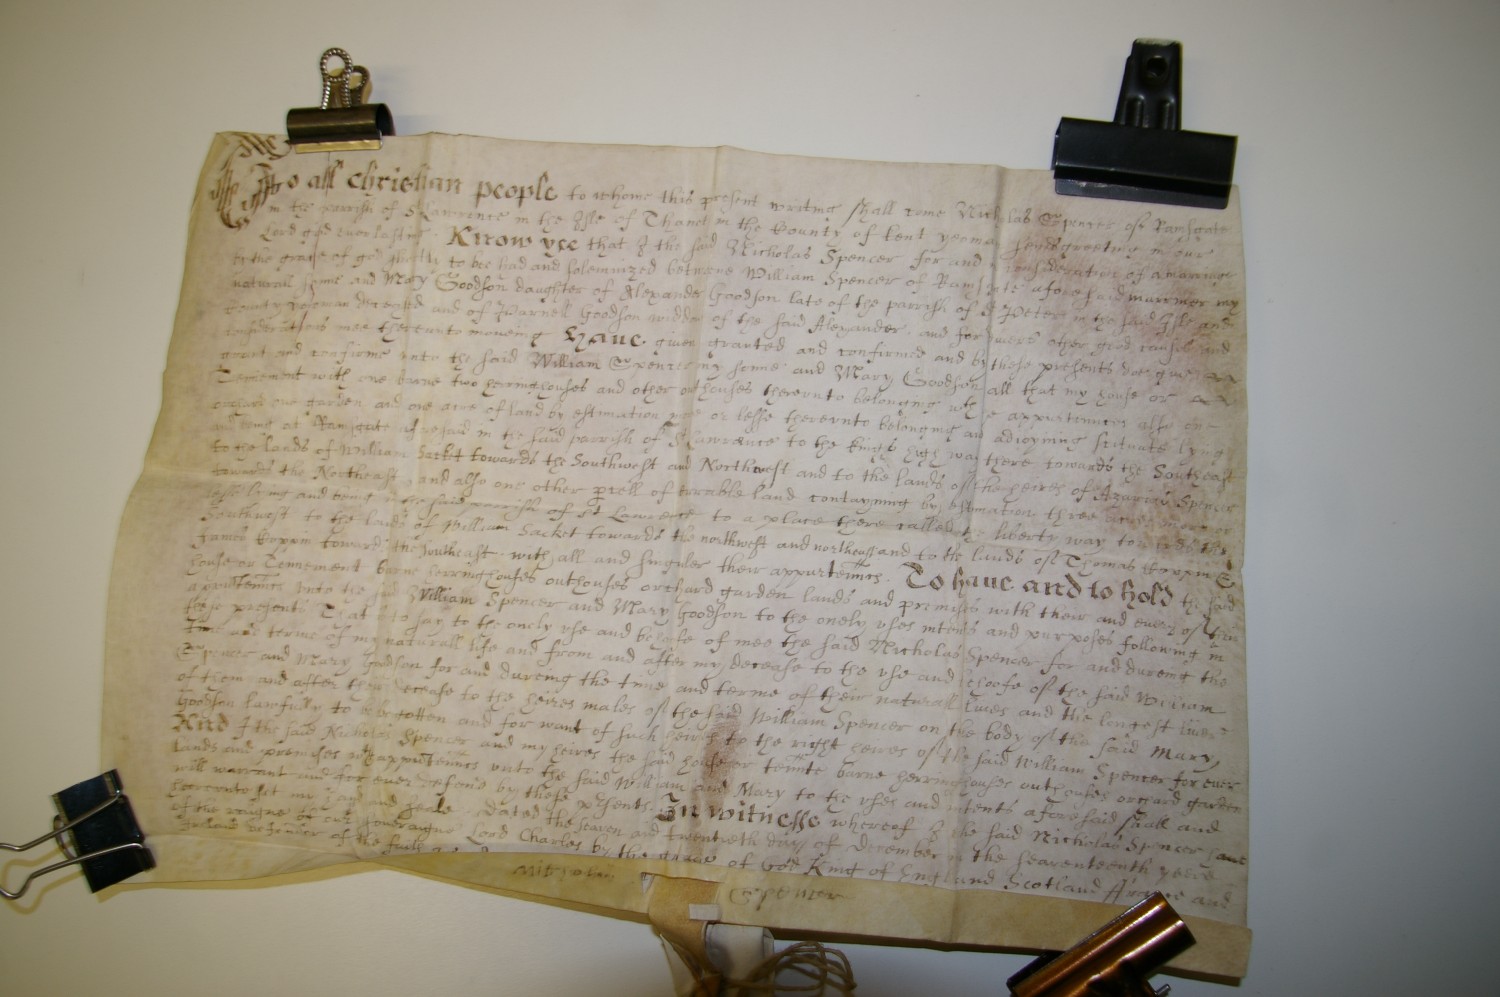 To all Christian people to whome this present writing shall come Nicholas Spencer of Ramsgate
in the parrish of St Lawrence in the Isle of Thanet in the County of Kent yeoman sends greeting in our
Lord god everlasting. Know yee that I the said Nicholas Spencer for and in consideration of a marriage
by the grace of god shortly to bee had and solemnized betwene William Spencer of Ramsgate aforesaid marriner my
naturall sonne and Mary Goodson daughter of Alexander Goodson late of the parrish of St Peters in the said Isle and
County yeoman deceased and of Parnell Goodson widdow of the said Alexander. and for other good causes and
considerations mee thereunto moveing have given granted and confirmed and by these presents doe give
grant and confirme unto the said William Spencer my sonne and Mary Goodson all that my house or
Tenement with one barne two herringhouses and other outhouses thereunto belonging with appurtennces also one
orchard one garden and one acre of land by estimation more or lesse thereunto belonging and adioyning scituate lying
and being at Ramsgate aforesaid in the said parrish of St Lawrence to the Kings high way there towards the Southeast
to the lands of William Sacket towards the Southwest and Northwest and to the lands of the heires of Azarias Spencer
towards the Northeast, and also one other prcell of errable land contayning by estimation three acres more or
lesse lying and being in the said parrish of St Lawrence to a place there called the liberty way towards the
Southwest to the lands of William Sacket towards the northwest and northeast and to the lands of Thomas &
James towards the southeast. with all and singuler their appurtennces. To have and to hold the said
house or Tennement barne herringhouses outhouses orchard garden lands and premises with their and every of their
appurtennces unto the said William Spencer and Mary Goodson to the onely uses intents and purposes following in
these presents That is to say to the onely use and behoofe of mee the said Nicholas Spencer for and dureing the
time and terme of my naturall life and from and after my decease to the use and behoofe of the said William
Spencer and Mary Goodson for and dureing the time and terme of their naturall lives and the longest liver
of them and after their decease to the heires males of the said William Spencer on the body of the said Mary
Goodson lawfully to be begotten and for want of such heires to the right heires of the said William Spencer for ever
And I the said Nicholas Spencer and my heires the said house or tennte barne herringhouses outhouses orchard garden
lands and premises with appurtennces unto the said William and Mary to the uses and intents aforesaid shall and
will warrant and for ever defend by these prsents. In witnesse whereof I the said Nicholas Spencer have
hereunto set my hand and seale. dated the seaven and twentieth day of December in the seaventeenth yeare
of the raigne of our soveraigne Lord Charles by the grace of God King of England Scotland France and
Ireland defender of the faith
Nicholas Spencer